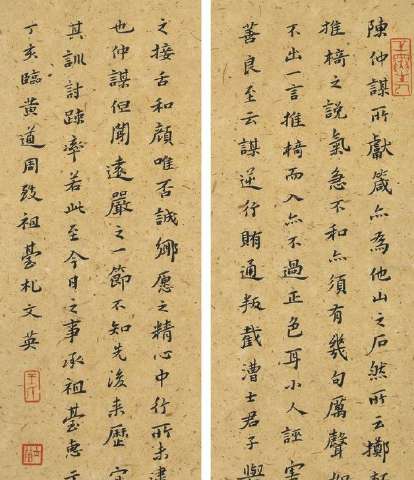 陳仲謀所獻箴亦為他山之石然所云擲
推㨿之說氣急不和亦須有幾句厲聲如
不出一言推㨿而入亦不過正色耳小人誣害
善良至云謀逆行賄通叛截漕士君子與
之接舌和顏唯否誠鄉愿之精心中行所未
也仲謀但聞遠嚴之一節不知先後來歷
其訓討踈率若此至今日之事承祖臺惠示
丁亥臨黃道周致祖臺札文英